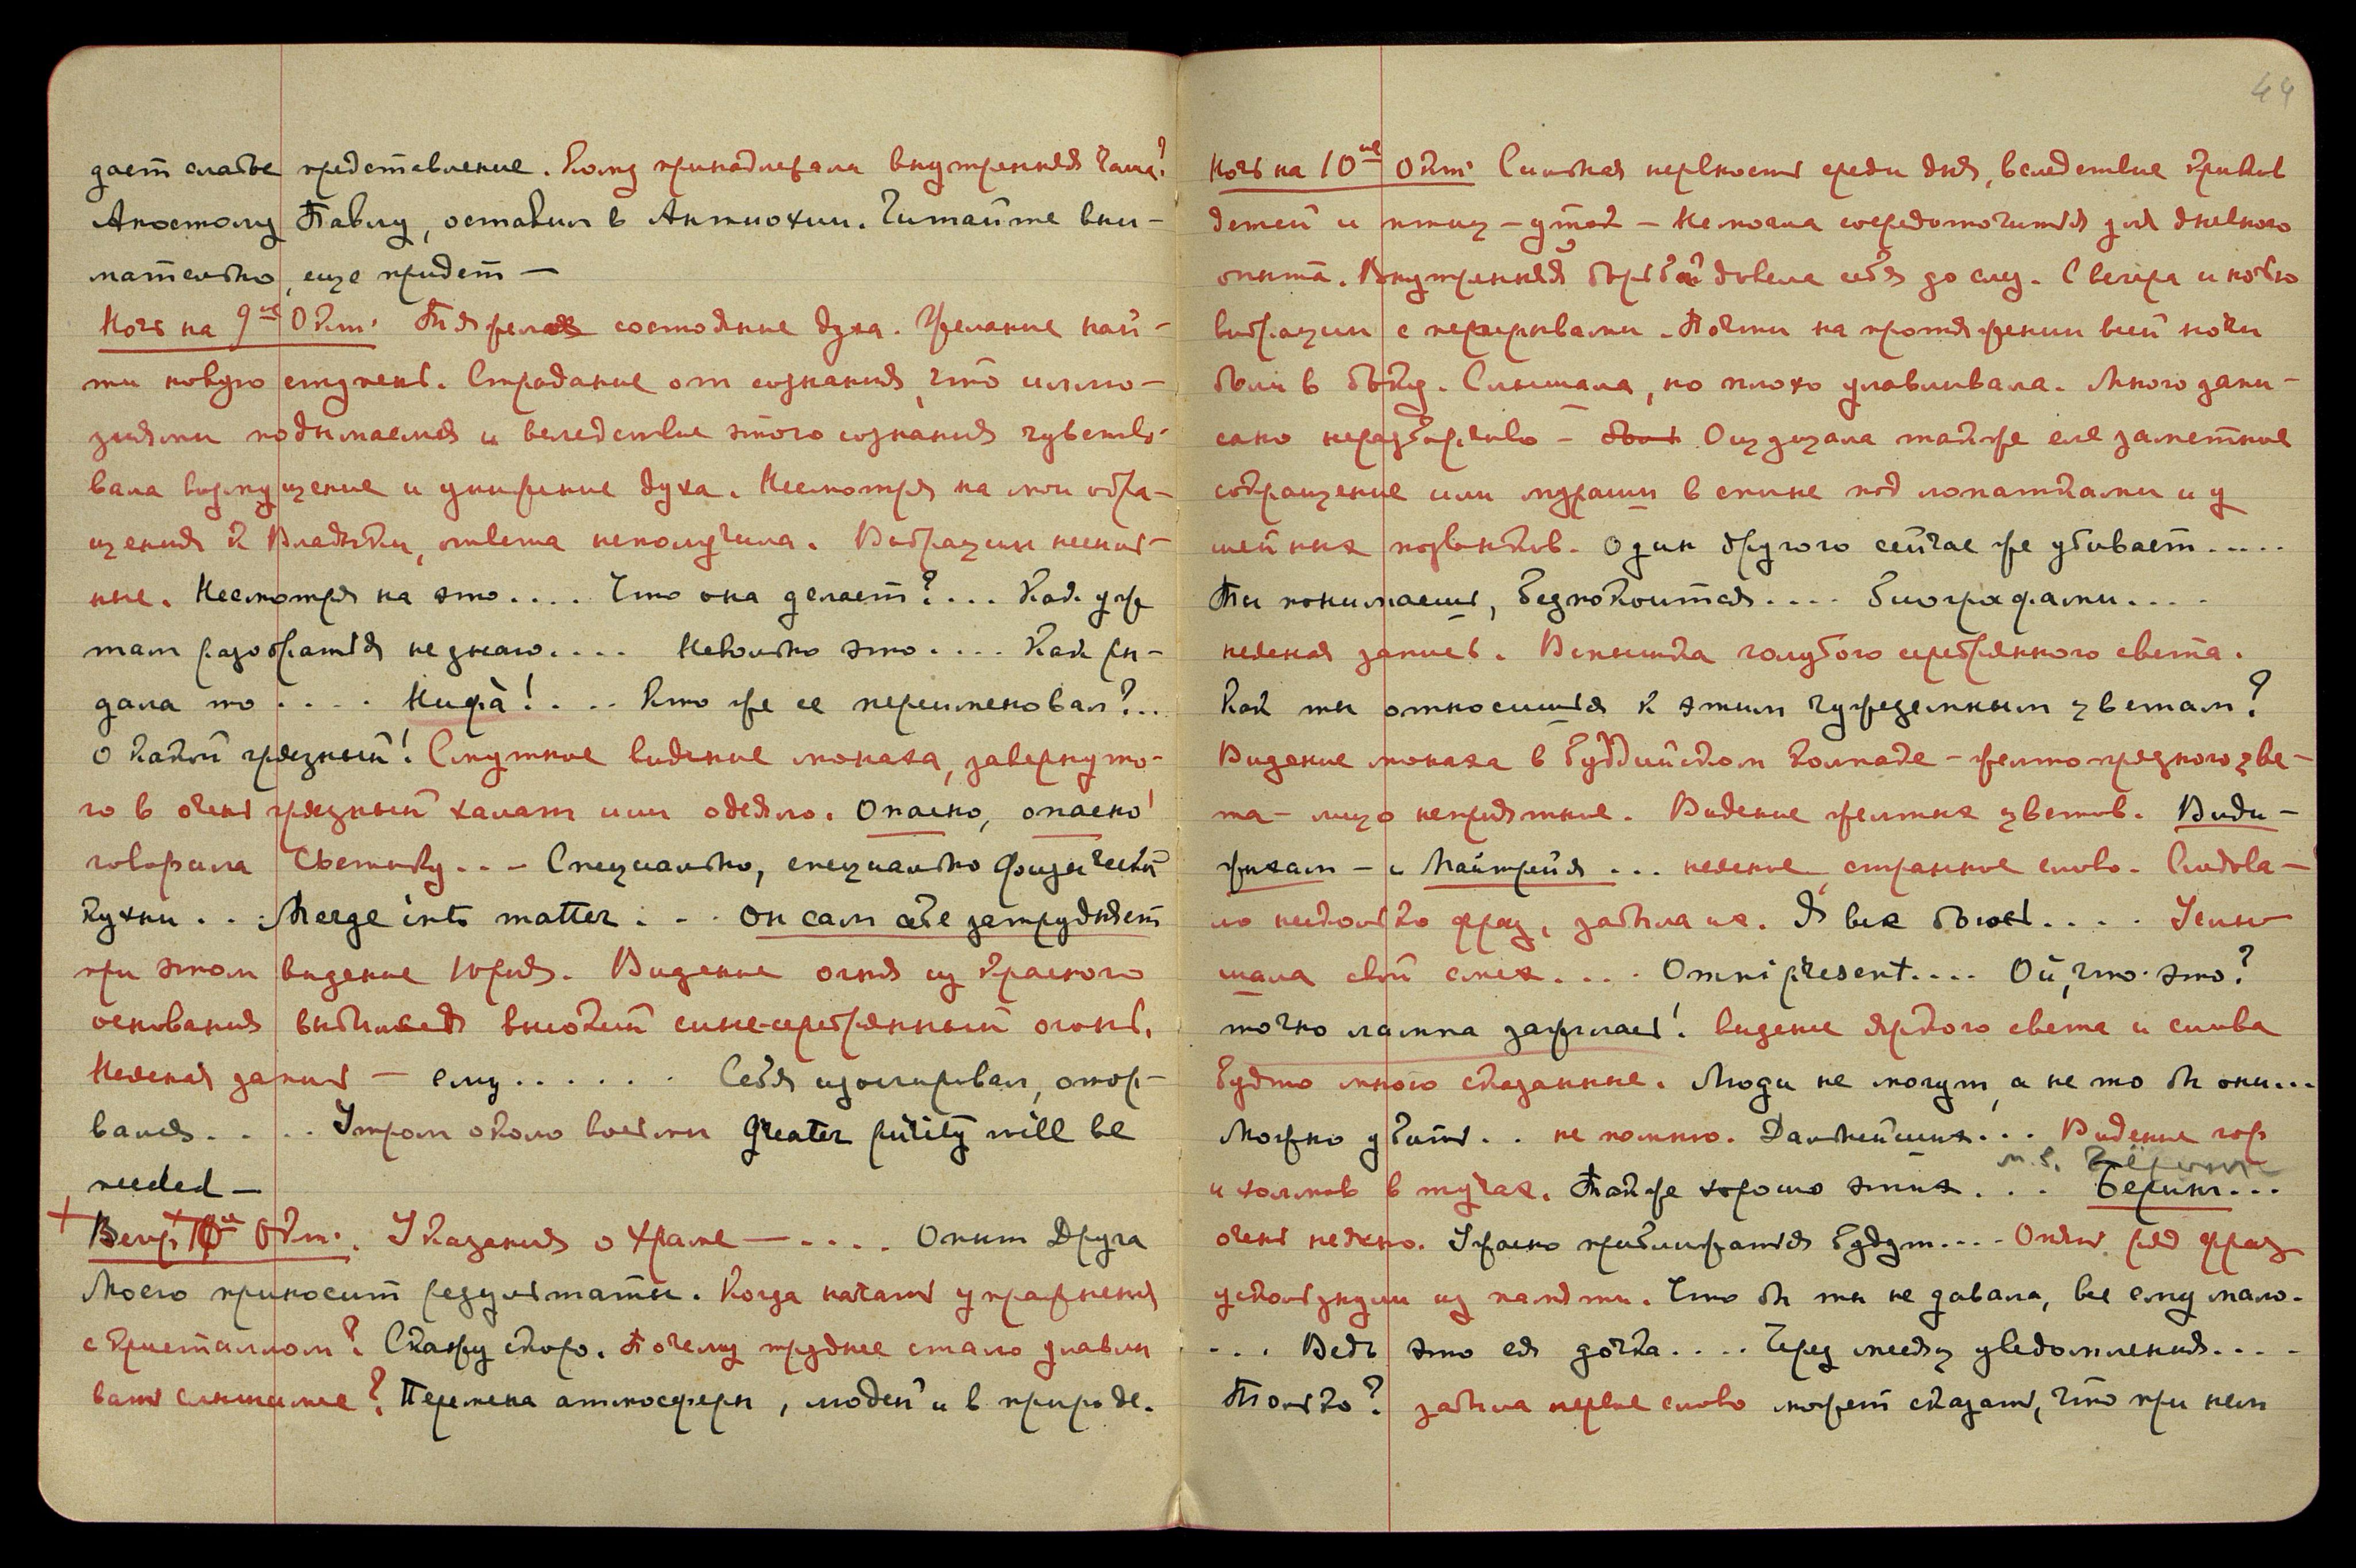 дает слабое представление. Кому принадлежала внутренняя чаша?
Апостолу Павлу, оставил в Антиохии. Читайте вни-
мательно, еще придет —
Ночь на 9ое Окт. Тяжелое состояние духа. Желание най-
ти новую ступень. Страдание от сознания, что иллю-
зиями поднимаемся и вследствие этого сознания чувство-
вала возмущение и унижение духа. Несмотря на мои обра-
щения к Владыки, ответа не получила. Вибрации
Несмотря на это.... Что она делает?... Как уж
там разобраться не знаю.... Невольно это.... Как ры-
дала то.... Кто же ее переименовал?..
О какой грязный! Смутное видение монаха, завернуто-
го в очень грязный халат или одеяло. Опасно, опасно!
говорила Светику... Специально, специально физической
кухни... Merge into matter... Он сам себе затрудняет
при этом видение Юрия. Видение огня из красного
основания выбился высокий сине-серебрянный огонь.
Неясная запись — ему...... Себя изолировал, отор-
вался..... Утром около восьми Greater purity will be
needed —
Веч. 10ое Окт. Указания о Храме —.... Опыт Друга
Моего приносит результаты. Когда начать упражнения
с кристаллом? Скажу скоро. Почему труднее стало улавли
вать слышимое? Перемена атмосферы, людей и в природе.
44
Ночь на 10ое Окт. Сильная нервность среди дня, вследствие криков
детей и птиц – уток – Не могла сосредоточиться для дневного
опыта. Внутренней борьбой довела себя до слез. С вечера и ночью
вибрации с перерывами. Почти на протяжении всей ночи
были в боку. Слышала, но плохо улавливала. Много запи-
сано неразборчиво – Ощущала также еле заметное
сокращение или мураши в спине под лопатками и у
шейных позвонков. Один другого сейчас же убивает.....
Ты понимаешь, безпокоится.... биографами....
неясная запись. Вспышка голубого серебрянного света.
Как ты относишься к этим чужеземным цветам?
Видение монаха в Буддийском колпаке – желто грязного цве-
та – лицо неприятное. Видение желтых цветов. Види-
жахам – и Майтрейя... неясное, странное слово. Следова-
ло несколько фраз, забыла их. Я всех боюсь.... Услы
шала свой смех.... Omnipresent.... Ой, что это?
точно лампа зажглась! видение яркого света и слова
будто много сказанные. Люди не могут, а не то бы они...
Можно убить.. не помню. Дальнейших... Видение гор
и холмов в тучах. Также хорошо этих... Беринг...
очень неясно. Ужасно приближаться будут.... Опять ряд фраз
ускользнули из памяти. Что бы ты не давала, все ему мало.
... Ведь это ея дочка.... Через месяц уведомления....
Только? забыла первое слово может сказать, что при нем